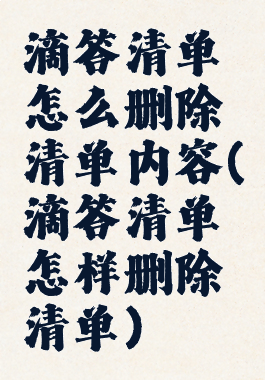 滴答清单
怎么删除
清单内容(
滴答清单
怎样删除
清单)